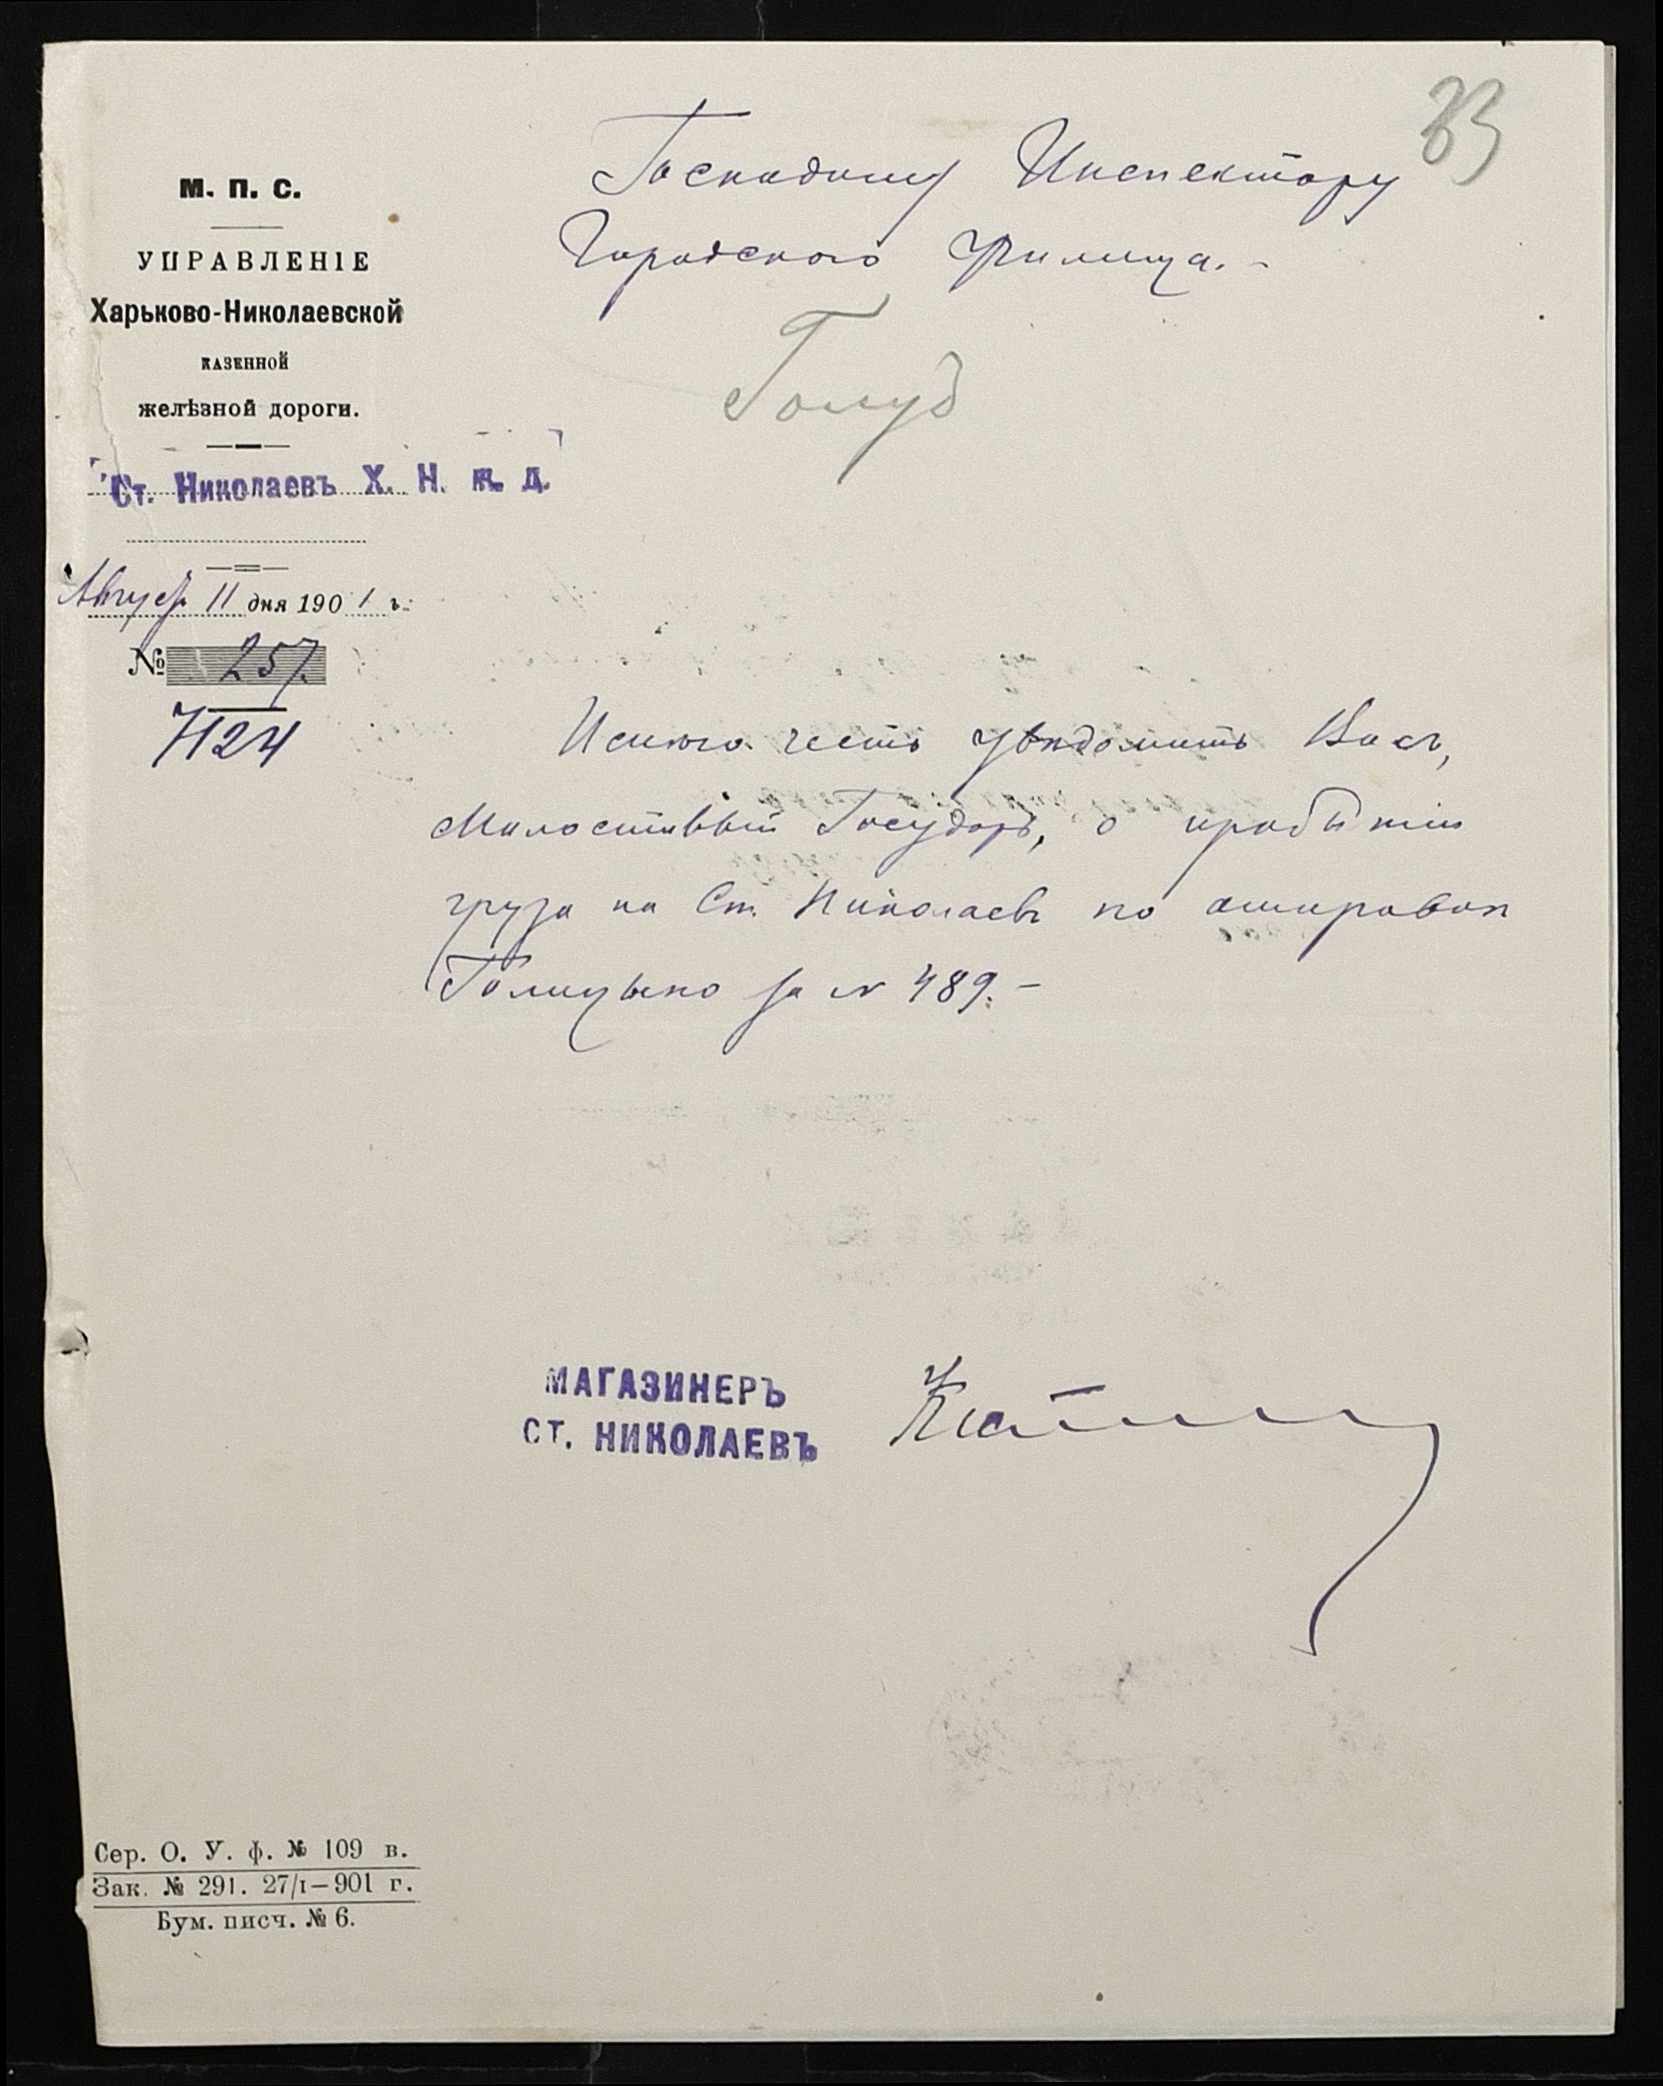 33
М. П. С.
УПРАВЛЕНІЕ
Харьково-Николаевской
КАЗЕННОЙ
желѣзной дороги.
Ст. Николаевъ Х. Н. ж. д.
Август 11 дня 1901 г.
№ 257.
7124
Господину Инспектору
Городского Училища. -
Голуб
Имею честь увѣдомить Васъ,
Милостивый Государь, о прибытіи
груза на Ст. Николаевъ по отправкѣ
Голицыно за № 489. -
МАГАЗИНЕРЪ
СТ. НИКОЛАЕВЪ
Сер. О. У. ф. № 109 в.
Зак. № 291. 27/I–901 г.
Бум. писч. № 6.